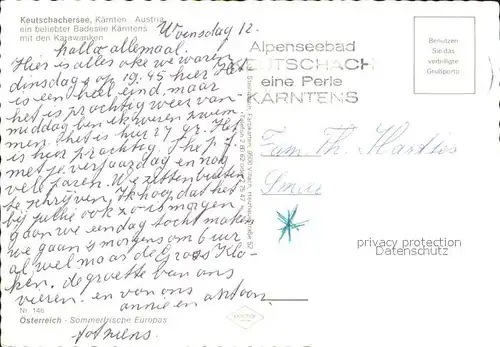 Keutschachersee, Kärnten Austria
ein beliebter Badesee Kärntens
mit den Karawanken
Woensdag 12.
hallo allemaal.
Hier is alles oke we waren
dinsdag op 19.45 hier. Het
is een heel eind, maar
het is prachtig weer van
middag ben ik wezen zwem
men. het is hier 27 gr. Het
is hier prachtig.
met je verjaardag en nog
vele jaren. We zitten buiten
te schrijven, Ik hoop dat het
bij jullie ook zo is morgen
gaan we een dag tocht maken
we gaan smorgens om 6 uur
al wel maar de Gross Klo-
ken. de groette van ons
vieren. en van ons
annie en antoon
Nr. 146
Österreich - Sommerfrische Europas
Alpenseebad
KEUTSCHACH
eine Perle
KÄRNTENS
Benutzen
Sie das
verbilligte
Großporto
Fam. Th.
privacy protection
Datenschutz